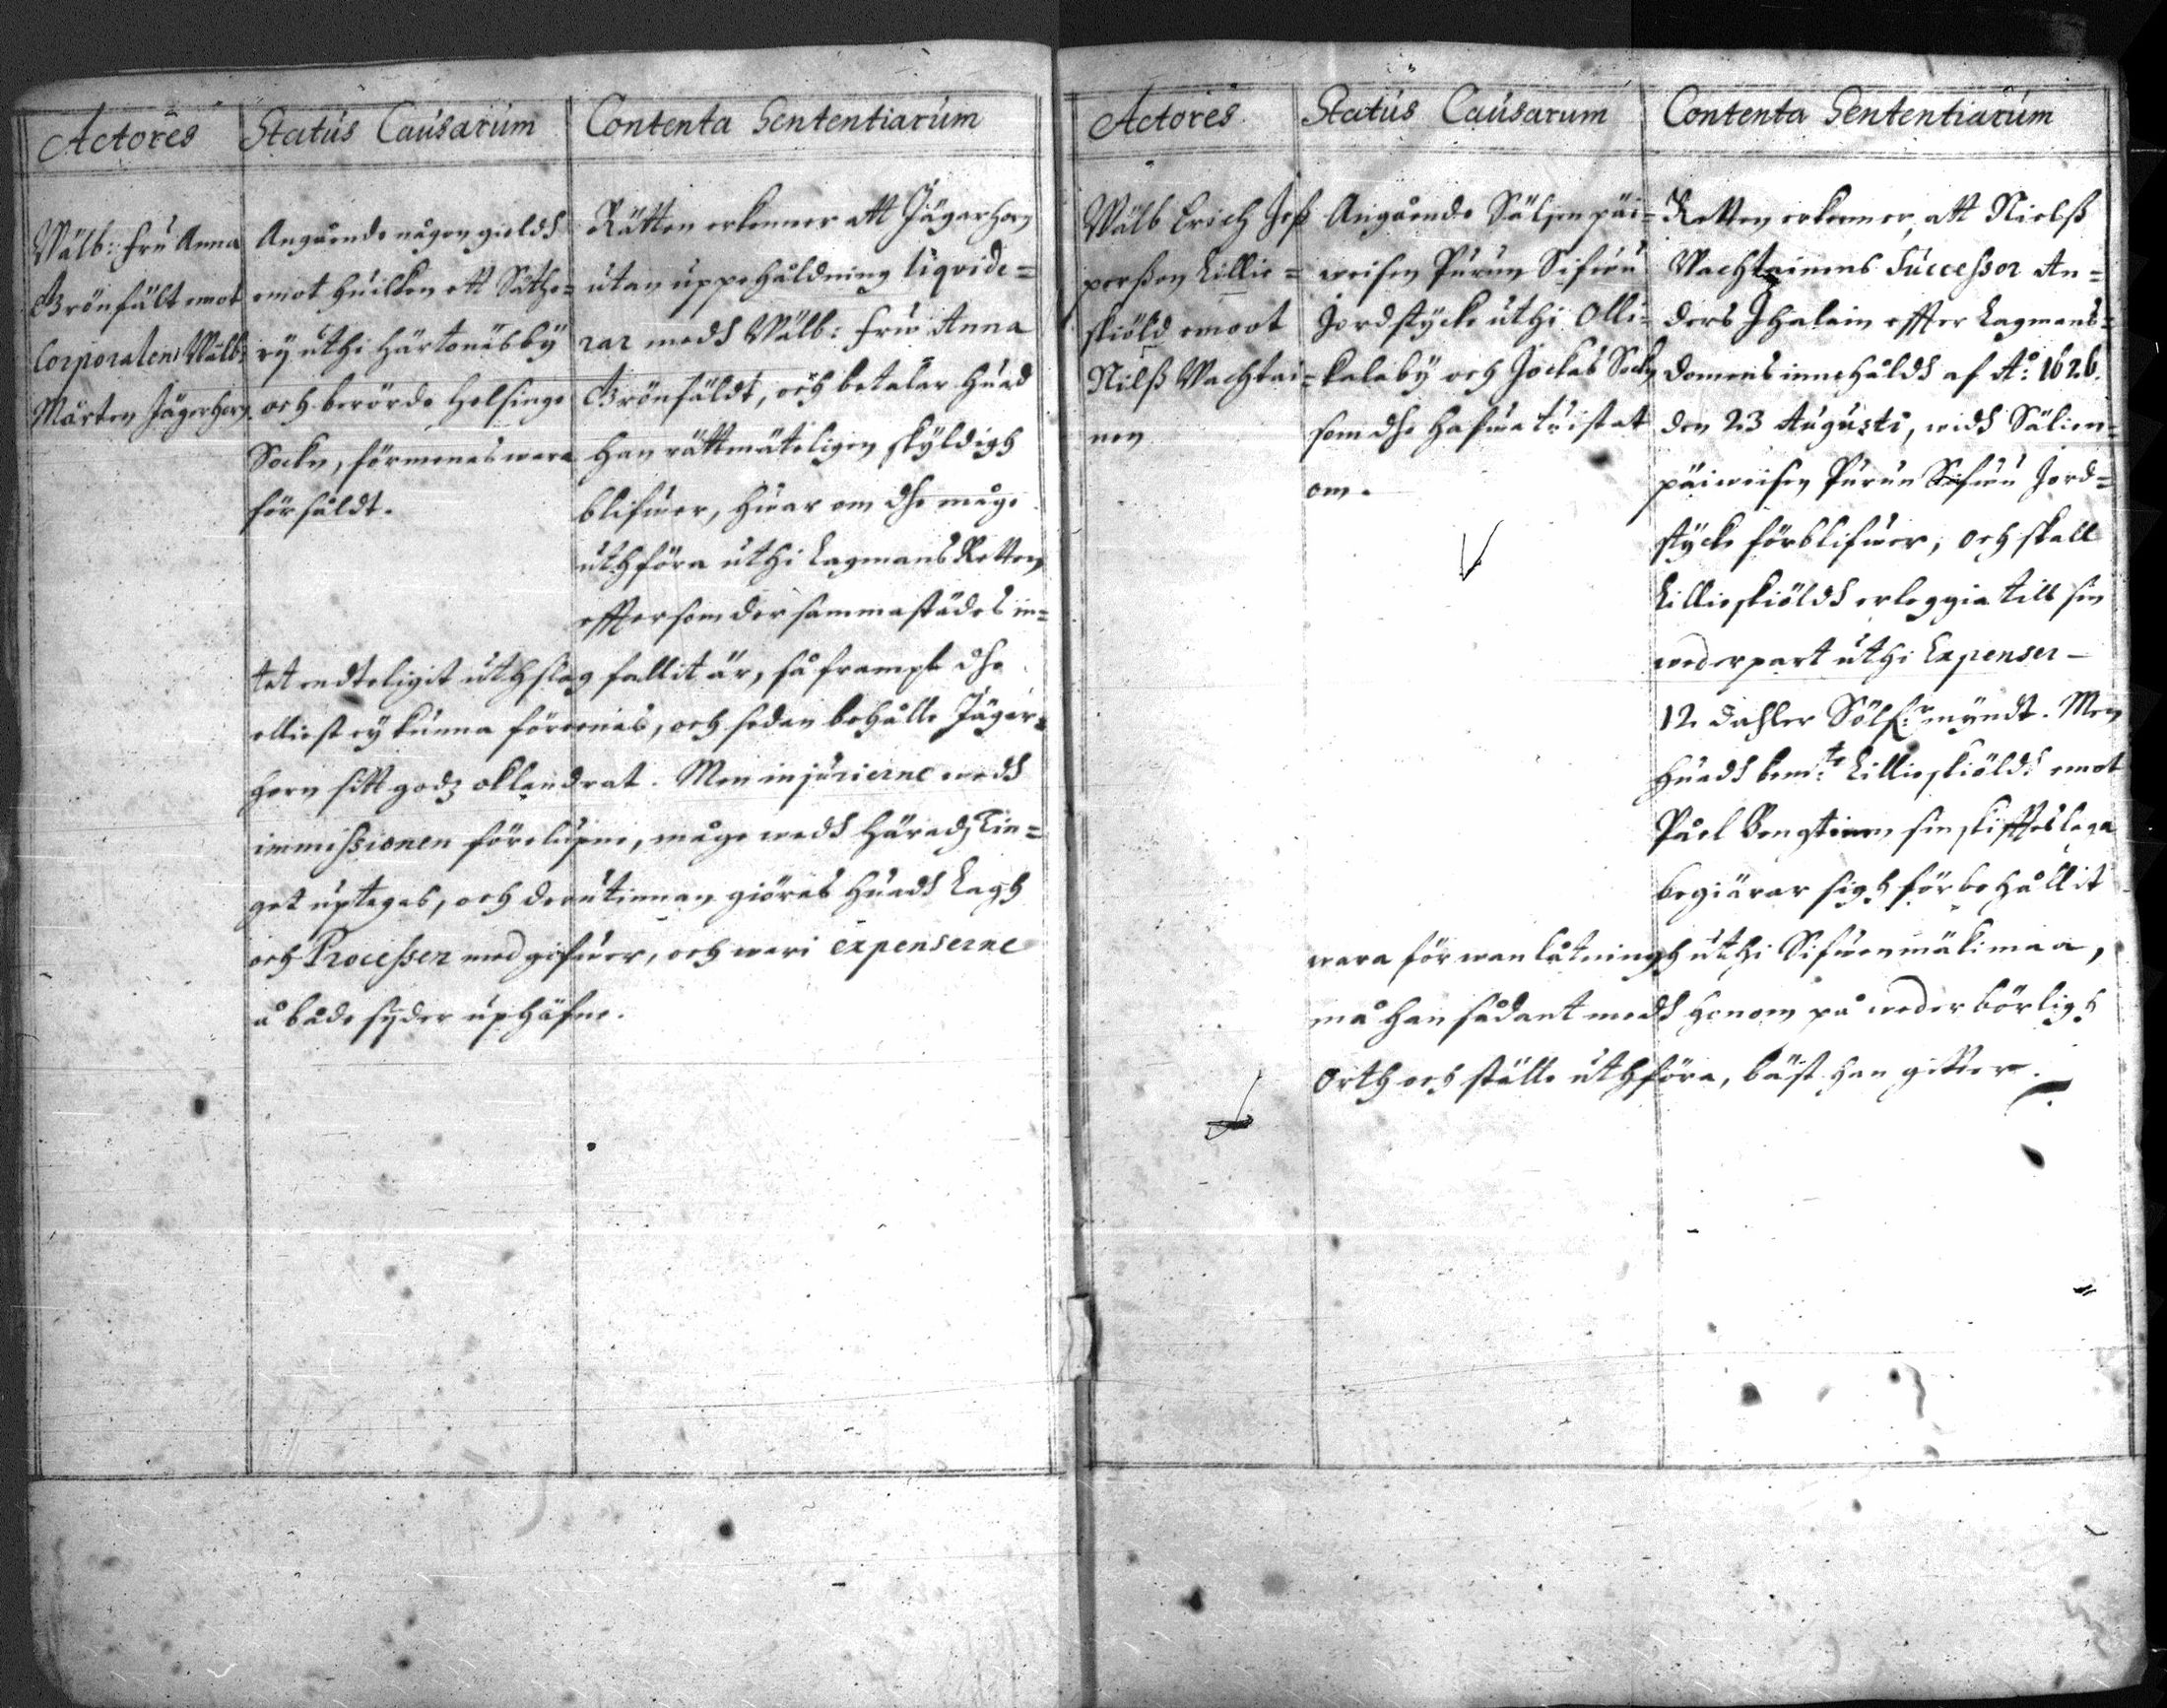 Actores
Status Causarum
Contenta Sententiarum
Wälb: fru Anna
Grönfält emot
Corporalen Wälb:
Mårten Jägerhorn.
Angående någon gieldh
emot huilken ett Säthe=
ry uthi Härtonäsby
och berörde Helsinge
Sockn, förmenas wara
försåldt.
Rätten erkenner att Jägarhorn
utan uppehåldning liqvide=
rar medh Wälb: fru Anna
Grönfäldt, och betalar huad
han rättmäteligen skyldigh
blifwer, hwar om dhe måge
uthföra uthi Lagmans Retten
effter som der sammastädes in=
tet endteligit uthslag fallit är, så frampt dhe
elliest ey kunna föreenas, och sedan behålle Jäger=
horn sitt godz oklandrat. Men injurierne wedh
immissionen förelupne, måge wedh Häradz Tin=
get uptagas, och derutinnan giöras huadh Lagh
och Processer medgifwer, och wari expenserne
å både syder uphäfne.
Actores
Status Causarum
Contenta Sententiarum
Wälb Erich Jes
perßon Lillie=
skiöld emoot
Nilß Wachtai=
nen
Angående Säljenpäi=
weisen Purun Sifwu
Jordstycke uthi Olli=
kalaby och Jockas Sockn
som dhe hafwa twistat
om.
Retten erkenner, att Nielß
Wachtainens Successor An=
ders Ihalain effter Lagmans=
domens innehåldh af A:o 1626.
den 23 Augusti, widh Sälien=
päiweisen Purun Sifwu Jord=
stycke förblifwer, och skall
Lillieskiöldh erleggia till sin
wederpart uthi Expenser –
12 dahler Sölf:r myndt. Men
huadh bem:te Lillieskiöldh emot
Påel Bengtinen sin skifftes laga
begiärar sigh förbehållit
wara för wanlåtningh uthi Sifwenmäkimaa,
må han sådant medh honom på wederbörligh
Orth och ställe uthföra, bäst han gitter.